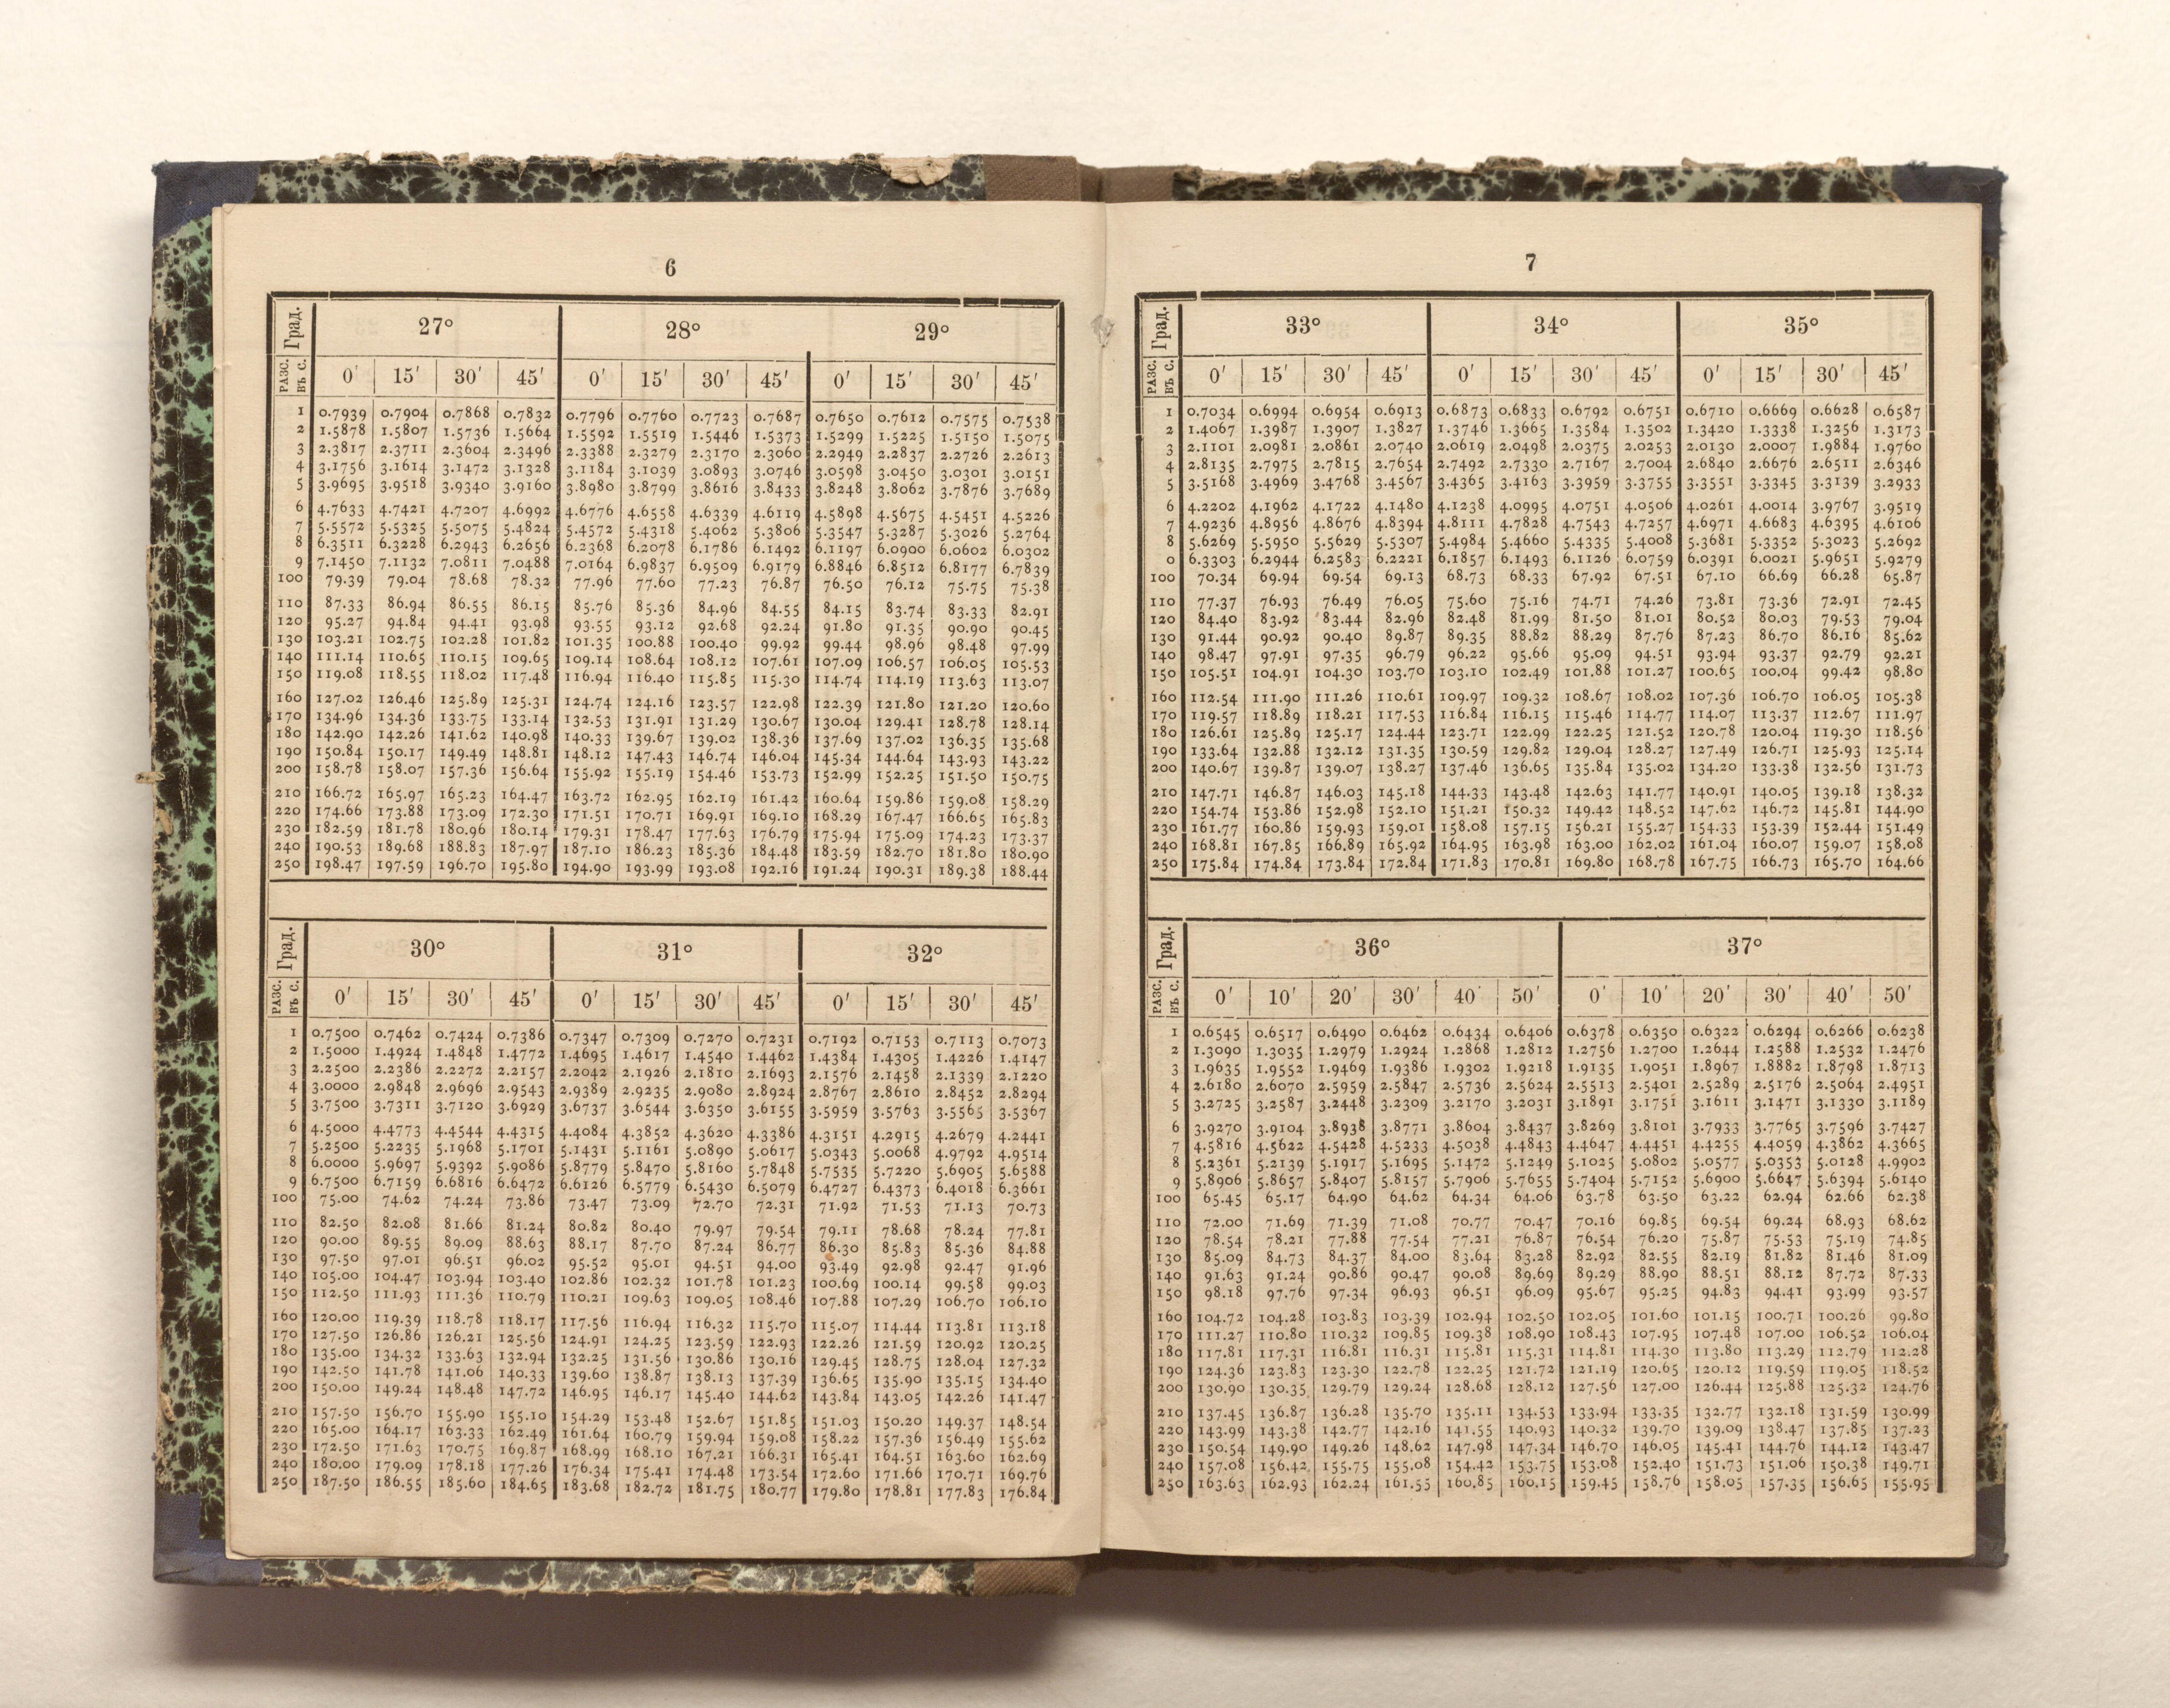 6
Град. 27° 28° 29°
РАЗС. ВЪ С. 0′ 15′ 30′ 45′ 0′ 15′ 30′ 45′ 0′ 15′ 30′ 45′
1 0.7939 0.7904 0.7868 0.7832 0.7796 0.7760 0.7723 0.7687 0.7650 0.7612 0.7575 0.7538
2 1.5878 1.5807 1.5736 1.5664 1.5592 1.5519 1.5446 1.5373 1.5299 1.5225 1.5150 1.5075
3 2.3817 2.3711 2.3604 2.3496 2.3388 2.3279 2.3170 2.3060 2.2949 2.2837 2.2726 2.2613
4 3.1756 3.1614 3.1472 3.1328 3.1184 3.1039 3.0893 3.0746 3.0598 3.0450 3.0301 3.0151
5 3.9695 3.9518 3.9340 3.9160 3.8980 3.8799 3.8616 3.8433 3.8248 3.8062 3.7876 3.7689
6 4.7633 4.7421 4.7207 4.6992 4.6776 4.6558 4.6339 4.6119 4.5898 4.5675 4.5451 4.5226
7 5.5572 5.5325 5.5075 5.4824 5.4572 5.4318 5.4062 5.3806 5.3547 5.3287 5.3026 5.2764
8 6.3511 6.3228 6.2943 6.2656 6.2368 6.2078 6.1786 6.1492 6.1197 6.0900 6.0602 6.0302
9 7.1450 7.1132 7.0811 7.0488 7.0164 6.9837 6.9509 6.9179 6.8846 6.8512 6.8177 6.7839
100 79.39 79.04 78.68 78.32 77.96 77.60 77.23 76.87 76.50 76.12 75.75 75.38
110 87.33 86.94 86.55 86.15 85.76 85.36 84.96 84.55 84.15 83.74 83.33 82.91
120 95.27 94.84 94.41 93.98 93.55 93.12 92.68 92.24 91.80 91.35 90.90 90.45
130 103.21 102.75 102.28 101.82 101.35 100.88 100.40 99.92 99.44 98.96 98.48 97.99
140 111.14 110.65 110.15 109.65 109.14 108.64 108.12 107.61 107.09 106.57 106.05 105.53
150 119.08 118.55 118.02 117.48 116.94 116.40 115.85 115.30 114.74 114.19 113.63 113.07
160 127.02 126.46 125.89 125.31 124.74 124.16 123.57 122.98 122.39 121.80 121.20 120.60
170 134.96 134.36 133.75 133.14 132.53 131.91 131.29 130.67 130.04 129.41 128.78 128.14
180 142.90 142.26 141.62 140.98 140.33 139.67 139.02 138.36 137.69 137.02 136.35 135.68
190 150.84 150.17 149.49 148.81 148.12 147.43 146.74 146.04 145.34 144.64 143.93 143.22
200 158.78 158.07 157.36 156.64 155.92 155.19 154.46 153.73 152.99 152.25 151.50 150.75
210 166.72 165.97 165.23 164.47 163.72 162.95 162.19 161.42 160.64 159.86 159.08 158.29
220 174.66 173.88 173.09 172.30 171.51 170.71 169.91 169.10 168.29 167.47 166.65 165.83
230 182.59 181.78 180.96 180.14 179.31 178.47 177.63 176.79 175.94 175.09 174.23 173.37
240 190.53 189.68 188.83 187.97 187.10 186.23 185.36 184.48 183.59 182.70 181.80 180.90
250 198.47 197.59 196.70 195.80 194.90 193.99 193.08 192.16 191.24 190.31 189.38 188.44
Град. 30° 31° 32°
РАЗС. ВЪ С. 0′ 15′ 30′ 45′ 0′ 15′ 30′ 45′ 0′ 15′ 30′ 45′
1 0.7500 0.7462 0.7424 0.7386 0.7347 0.7309 0.7270 0.7231 0.7192 0.7153 0.7113 0.7073
2 1.5000 1.4924 1.4848 1.4772 1.4695 1.4617 1.4540 1.4462 1.4384 1.4305 1.4226 1.4147
3 2.2500 2.2386 2.2272 2.2157 2.2042 2.1926 2.1810 2.1693 2.1576 2.1458 2.1339 2.1220
4 3.0000 2.9848 2.9696 2.9543 2.9389 2.9235 2.9080 2.8924 2.8767 2.8610 2.8452 2.8294
5 3.7500 3.7311 3.7120 3.6929 3.6737 3.6544 3.6350 3.6155 3.5959 3.5763 3.5565 3.5367
6 4.5000 4.4773 4.4544 4.4315 4.4084 4.3852 4.3620 4.3386 4.3151 4.2915 4.2679 4.2441
7 5.2500 5.2235 5.1968 5.1701 5.1431 5.1161 5.0890 5.0617 5.0343 5.0068 4.9792 4.9514
8 6.0000 5.9697 5.9392 5.9086 5.8779 5.8470 5.8160 5.7848 5.7535 5.7220 5.6905 5.6588
9 6.7500 6.7159 6.6816 6.6472 6.6126 6.5779 6.5430 6.5079 6.4727 6.4373 6.4018 6.3661
100 75.00 74.62 74.24 73.86 73.47 73.09 72.70 72.31 71.92 71.53 71.13 70.73
110 82.50 82.08 81.66 81.24 80.82 80.40 79.97 79.54 79.11 78.68 78.24 77.81
120 90.00 89.55 89.09 88.63 88.17 87.70 87.24 86.77 86.30 85.83 85.36 84.88
130 97.50 97.01 96.51 96.02 95.52 95.01 94.51 94.00 93.49 92.98 92.47 91.96
140 105.00 104.47 103.94 103.40 102.86 102.32 101.78 101.23 100.69 100.14 99.58 99.03
150 112.50 111.93 111.36 110.79 110.21 109.63 109.05 108.46 107.88 107.29 106.70 106.10
160 120.00 119.39 118.78 118.17 117.56 116.94 116.32 115.70 115.07 114.44 113.81 113.18
170 127.50 126.86 126.21 125.56 124.91 124.25 123.59 122.93 122.26 121.59 120.92 120.25
180 135.00 134.32 133.63 132.94 132.25 131.56 130.86 130.16 129.45 128.75 128.04 127.32
190 142.50 141.78 141.06 140.33 139.60 138.87 138.13 137.39 136.65 135.90 135.15 134.40
200 150.00 149.24 148.48 147.72 146.95 146.17 145.40 144.62 143.84 143.05 142.26 141.47
210 157.50 156.70 155.90 155.10 154.29 153.48 152.67 151.85 151.03 150.20 149.37 148.54
220 165.00 164.17 163.33 162.49 161.64 160.79 159.94 159.08 158.22 157.36 156.49 155.62
230 172.50 171.63 170.75 169.87 168.99 168.10 167.21 166.31 165.41 164.51 163.60 162.69
240 180.00 179.09 178.18 177.26 176.34 175.41 174.48 173.54 172.60 171.66 170.71 169.76
250 187.50 186.55 185.60 184.65 183.68 182.72 181.75 180.77 179.80 178.81 177.83 176.84
7
Град. 33° 34° 35°
РАЗС. ВЪ С. 0′ 15′ 30′ 45′ 0′ 15′ 30′ 45′ 0′ 15′ 30′ 45′
1 0.7034 0.6994 0.6954 0.6913 0.6873 0.6833 0.6792 0.6751 0.6710 0.6669 0.6628 0.6587
2 1.4067 1.3987 1.3907 1.3827 1.3746 1.3665 1.3584 1.3502 1.3420 1.3338 1.3256 1.3173
3 2.1101 2.0981 2.0861 2.0740 2.0619 2.0498 2.0375 2.0253 2.0130 2.0007 1.9884 1.9760
4 2.8135 2.7975 2.7815 2.7654 2.7492 2.7330 2.7167 2.7004 2.6840 2.6676 2.6511 2.6346
5 3.5168 3.4969 3.4768 3.4567 3.4365 3.4163 3.3959 3.3755 3.3551 3.3345 3.3139 3.2933
6 4.2202 4.1962 4.1722 4.1480 4.1238 4.0995 4.0751 4.0506 4.0261 4.0014 3.9767 3.9519
7 4.9236 4.8956 4.8676 4.8394 4.8111 4.7828 4.7543 4.7257 4.6971 4.6683 4.6395 4.6106
8 5.6269 5.5950 5.5629 5.5307 5.4984 5.4660 5.4335 5.4008 5.3681 5.3352 5.3023 5.2692
0 6.3303 6.2944 6.2583 6.2221 6.1857 6.1493 6.1126 6.0759 6.0391 6.0021 5.9651 5.9279
100 70.34 69.94 69.54 69.13 68.73 68.33 67.92 67.51 67.10 66.69 66.28 65.87
110 77.37 76.93 76.49 76.05 75.60 75.16 74.71 74.26 73.81 73.36 72.91 72.45
120 84.40 83.92 83.44 82.96 82.48 81.99 81.50 81.01 80.52 80.03 79.53 79.04
130 91.44 90.92 90.40 89.87 89.35 88.82 88.29 87.76 87.23 86.70 86.16 85.62
140 98.47 97.91 97.35 96.79 96.22 95.66 95.09 94.51 93.94 93.37 92.79 92.21
150 105.51 104.91 104.30 103.70 103.10 102.49 101.88 101.27 100.65 100.04 99.42 98.80
160 112.54 111.90 111.26 110.61 109.97 109.32 108.67 108.02 107.36 106.70 106.05 105.38
170 119.57 118.89 118.21 117.53 116.84 116.15 115.46 114.77 114.07 113.37 112.67 111.97
180 126.61 125.89 125.17 124.44 123.71 122.99 122.25 121.52 120.78 120.04 119.30 118.56
190 133.64 132.88 132.12 131.35 130.59 129.82 129.04 128.27 127.49 126.71 125.93 125.14
200 140.67 139.87 139.07 138.27 137.46 136.65 135.84 135.02 134.20 133.38 132.56 131.73
210 147.71 146.87 146.03 145.18 144.33 143.48 142.63 141.77 140.91 140.05 139.18 138.32
220 154.74 153.86 152.98 152.10 151.21 150.32 149.42 148.52 147.62 146.72 145.81 144.90
230 161.77 160.86 159.93 159.01 158.08 157.15 156.21 155.27 154.33 153.39 152.44 151.49
240 168.81 167.85 166.89 165.92 164.95 163.98 163.00 162.02 161.04 160.07 159.07 158.08
250 175.84 174.84 173.84 172.84 171.83 170.81 169.80 168.78 167.75 166.73 165.70 164.66
Град. 36° 37°
РАЗС. ВЪ С. 0′ 10′ 20′ 30′ 40′ 50′ 0′ 10′ 20′ 30′ 40′ 50′
1 0.6545 0.6517 0.6490 0.6462 0.6434 0.6406 0.6378 0.6350 0.6322 0.6294 0.6266 0.6238
2 1.3090 1.3035 1.2979 1.2924 1.2868 1.2812 1.2756 1.2700 1.2644 1.2588 1.2532 1.2476
3 1.9635 1.9552 1.9469 1.9386 1.9302 1.9218 1.9135 1.9051 1.8967 1.8882 1.8798 1.8713
4 2.6180 2.6070 2.5959 2.5847 2.5736 2.5624 2.5513 2.5401 2.5289 2.5176 2.5064 2.4951
5 3.2725 3.2587 3.2448 3.2309 3.2170 3.2031 3.1891 3.1751 3.1611 3.1471 3.1330 3.1189
6 3.9270 3.9104 3.8938 3.8771 3.8604 3.8437 3.8269 3.8101 3.7933 3.7765 3.7596 3.7427
7 4.5816 4.5622 4.5428 4.5233 4.5038 4.4843 4.4647 4.4451 4.4255 4.4059 4.3862 4.3665
8 5.2361 5.2139 5.1917 5.1695 5.1472 5.1249 5.1025 5.0802 5.0577 5.0353 5.0128 4.9902
9 5.8906 5.8657 5.8407 5.8157 5.7906 5.7655 5.7404 5.7152 5.6900 5.6647 5.6394 5.6140
100 65.45 65.17 64.90 64.62 64.34 64.06 63.78 63.50 63.22 62.94 62.66 62.38
110 72.00 71.69 71.39 71.08 70.77 70.47 70.16 69.85 69.54 69.24 68.93 68.62
120 78.54 78.21 77.88 77.54 77.21 76.87 76.54 76.20 75.87 75.53 75.19 74.85
130 85.09 84.73 84.37 84.00 83.64 83.28 82.92 82.55 82.19 81.82 81.46 81.09
140 91.63 91.24 90.86 90.47 90.08 89.69 89.29 88.90 88.51 88.12 87.72 87.33
150 98.18 97.76 97.34 96.93 96.51 96.09 95.67 95.25 94.83 94.41 93.99 93.57
160 104.72 104.28 103.83 103.39 102.94 102.50 102.05 101.60 101.15 100.71 100.26 99.80
170 111.27 110.80 110.32 109.85 109.38 108.90 108.43 107.95 107.48 107.00 106.52 106.04
180 117.81 117.31 116.81 116.31 115.81 115.31 114.81 114.30 113.80 113.29 112.79 112.28
190 124.36 123.83 123.30 122.78 122.25 121.72 121.19 120.65 120.12 119.59 119.05 118.52
200 130.90 130.35 129.79 129.24 128.68 128.12 127.56 127.00 126.44 125.88 125.32 124.76
210 137.45 136.87 136.28 135.70 135.11 134.53 133.94 133.35 132.77 132.18 131.59 130.99
220 143.99 143.38 142.77 142.16 141.55 140.93 140.32 139.70 139.09 138.47 137.85 137.23
230 150.54 149.90 149.26 148.62 147.98 147.34 146.70 146.05 145.41 144.76 144.12 143.47
240 157.08 156.42 155.75 155.08 154.42 153.75 153.08 152.40 151.73 151.06 150.38 149.71
250 163.63 162.93 162.24 161.55 160.85 160.15 159.45 158.76 158.05 157.35 156.65 155.95